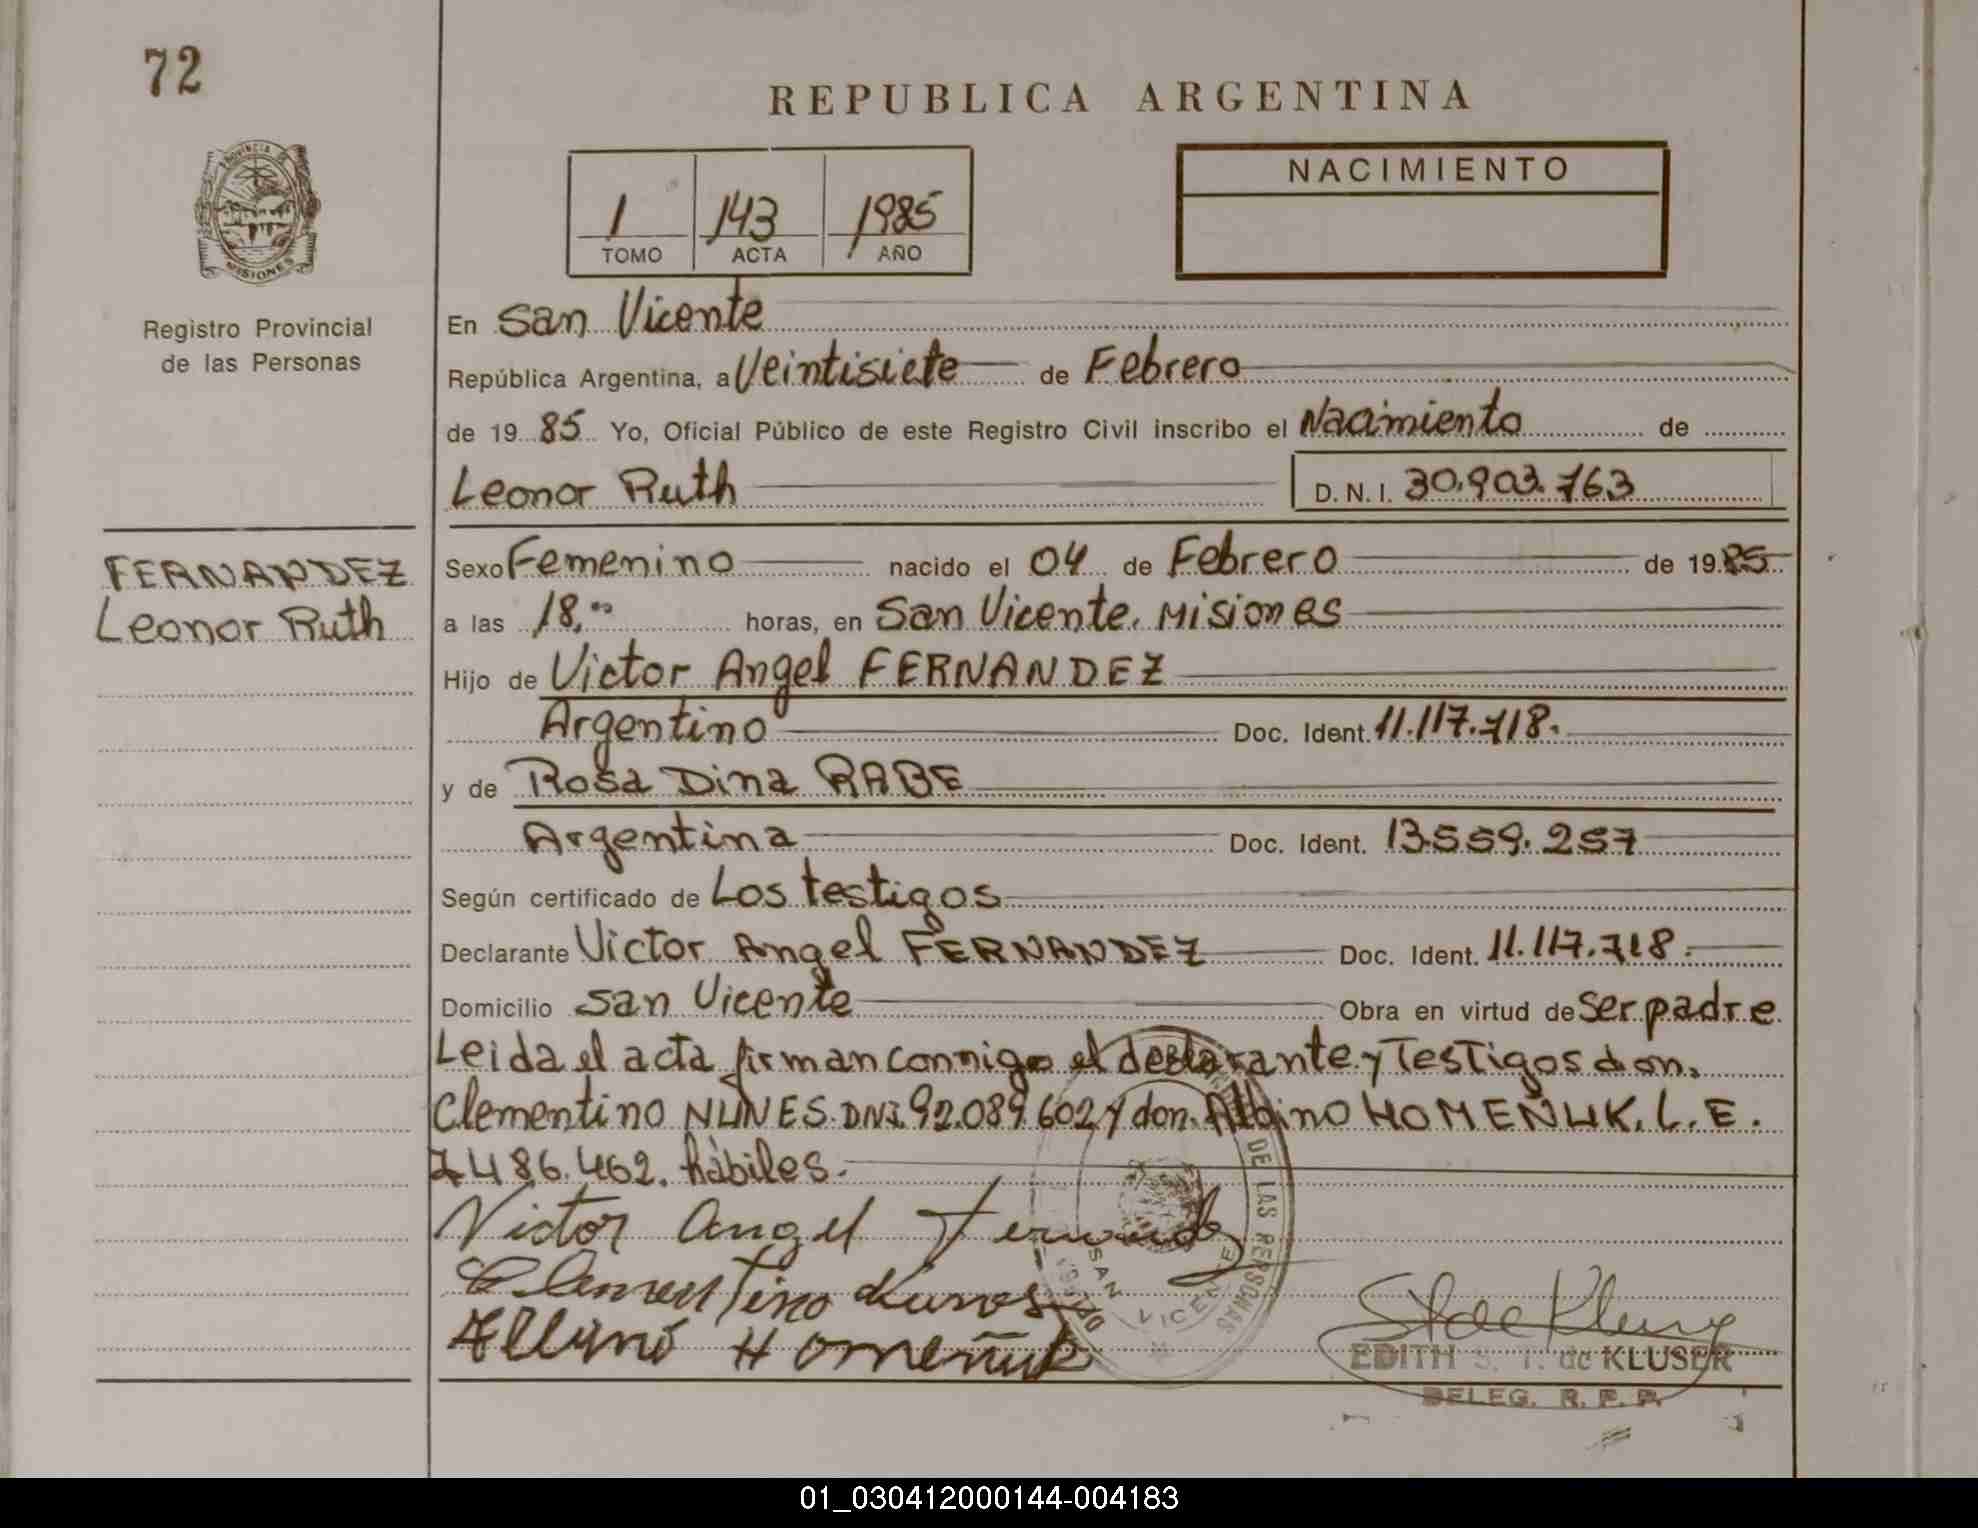 72
REPUBLICA ARGENTINA
PROVINCIA DE
MISIONES
Registro Provincial
de las Personas
1 143 1985
TOMO ACTA AÑO
NACIMIENTO
En San Vicente
República Argentina, a Veintisiete de Febrero
de 19 85 Yo, Oficial Público de este Registro Civil inscribo el Nacimiento de
Leonor Ruth D.N.I. 30.903.763
FERNANDEZ
Leonor Ruth
Sexo Femenino nacido el 04 de Febrero de 19 85
a las 18,00 horas, en San Vicente. Misiones
Hijo de Victor Angel FERNANDEZ
Argentino Doc. Ident. 11.117.718.
y de Rosa Dina RABE
Argentina Doc. Ident. 13.559.257
Según certificado de Los testigos
Declarante Victor Angel FERNANDEZ Doc. Ident. 11.117.718.
Domicilio San Vicente Obra en virtud de Ser padre
Leida el acta firman conmigo el declarante y Testigos don.
Clementino NUNES. DNI. 92.089.602 y don. Albino HOMEÑUK. L.E.
7486.462. hàbiles.
Victor Angel Fernandez
Clementino Nunes
Albino Homeñuk
DE LAS PERSONAS
SAN VICENTE
EDITH S. T. de KLUSER
DELEG. R. P. P.
01_030412000144-004183